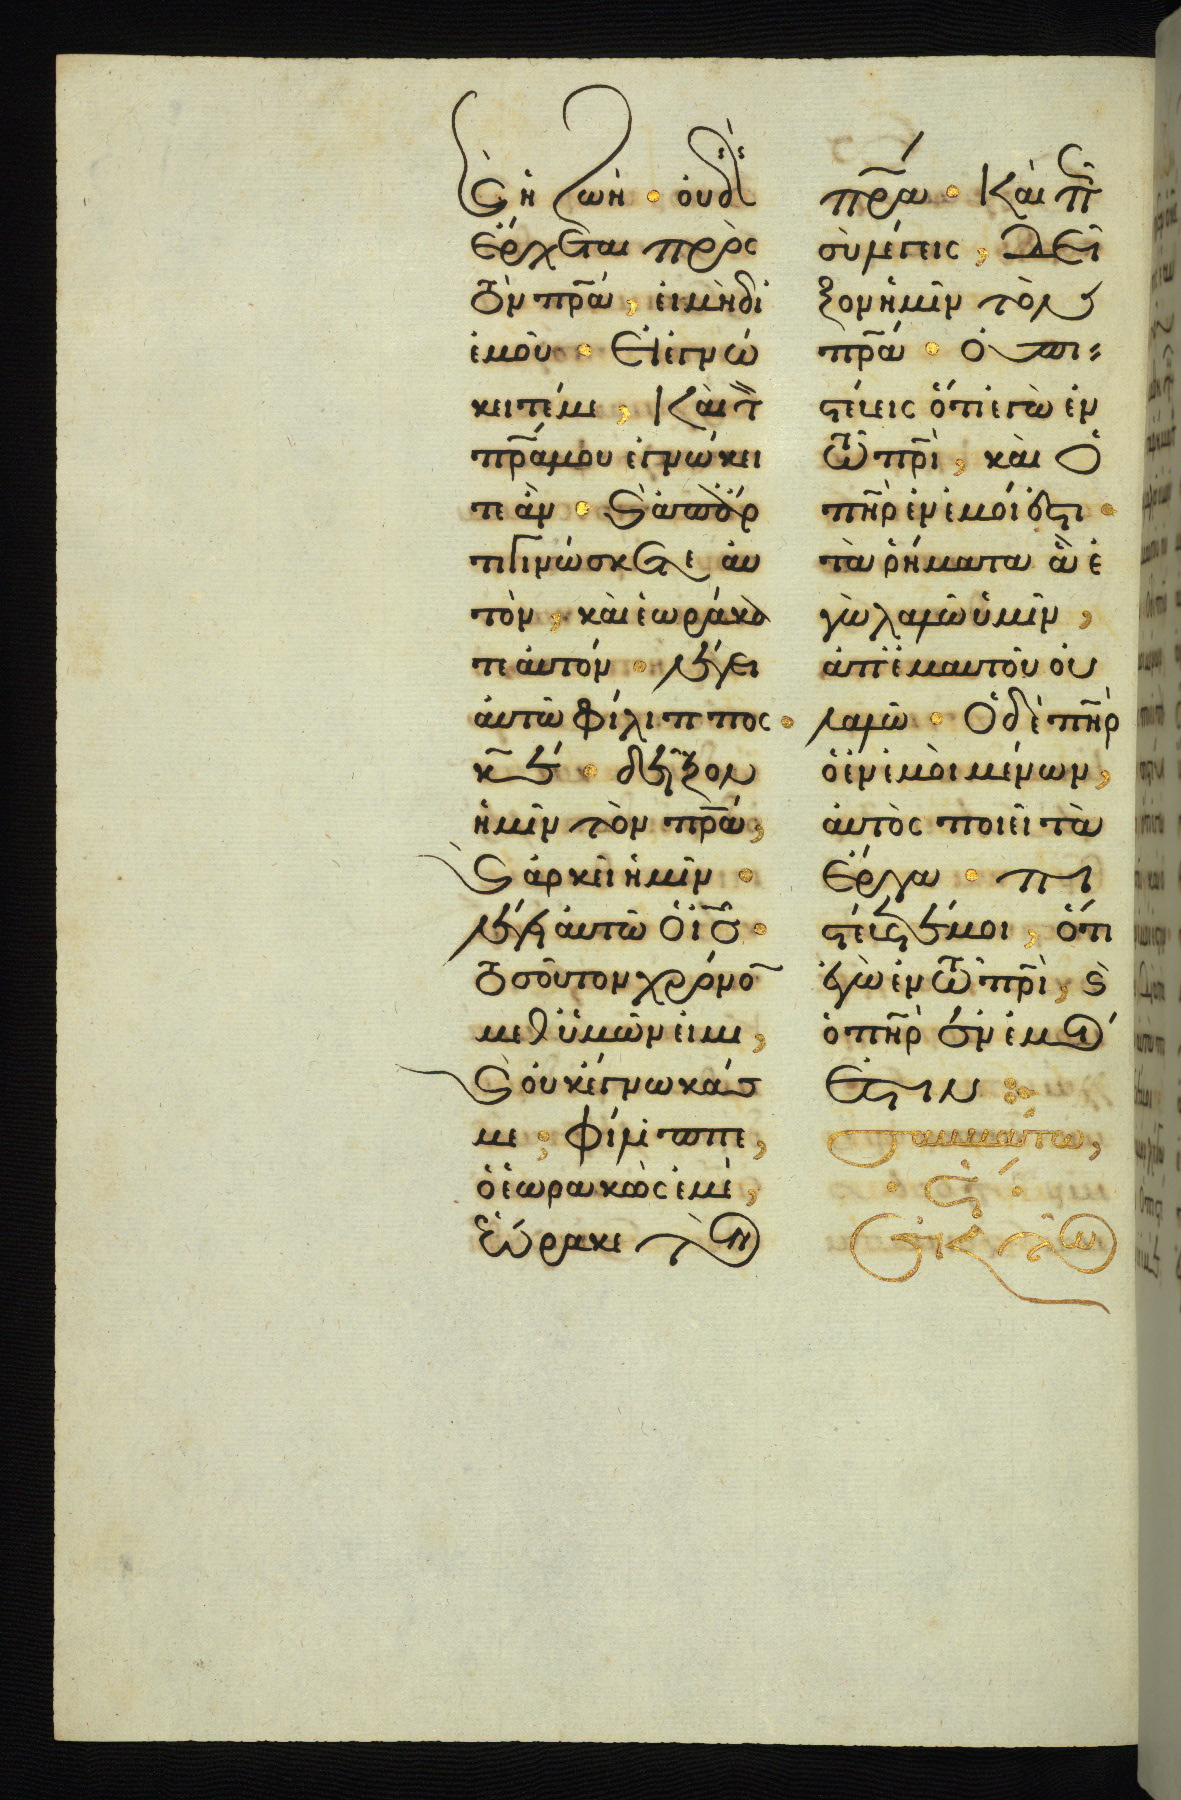 ϗ ἡ ζωή · οὐδεὶς
ἔρχεται πρὸς
τὸν πρ̅α, εἰ μὴ δι
ἐμοῦ · Εἰ ἐγνώ
κειτέ με, Καὶ τ
πρ̅α μου ἐγνώκει
τε ἂν · ϗ ἀπ' ἄρ
τι γινώσκετε αὐ
τὸν, καὶ ἑωράκα
τε αὐτόν · λέγει
αὐτῶ φίλιππος ·
κ̅ε · δεῖξον
ἡμῖν τὸν πρ̅α,
ϗ ἀρκεῖ ἡμῖν ·
λέγει αὐτῶ ὁ ι̅ς ·
τοσοῦτον χρόνο̅
μεθ' ὑμῶν εἰμι,
ϗ οὐκ ἔγνωκάς
με, φίλιππε,
ὁ ἑωρακὼς ἐμὲ,
ἑώρακε τὸν
πρ̅α · Καὶ πῶς
σὺ λέγεις, Δεῖ
ξον ἡμῖν τὸν
πρ̅α · Οὐ πι-
στεύεις ὅτι ἐγὼ ἐν
τῶ πρ̅ι, καὶ ὁ
πη̅ρ ἐν ἐμοί ἐστι ·
τὰ ῥήματα ἃ ἐ
γὼ λαλῶ ὑμῖν,
ἀπ' ἐμαυτοῦ οὐ
λαλῶ · Ὁ δὲ πη̅ρ
ὁ ἐν ἐμοὶ μένων,
αὐτὸς ποιεῖ τὰ
ἔργα · πι
στεύετέ μοι, ὅτι
ἐγὼ ἐν τῶ πρ̅ι, ϗ
ὁ πη̅ρ ἐν ἐμοί
ἐστιν
Σαββάτω,
· ϛ ·
ἐκ τοῦ